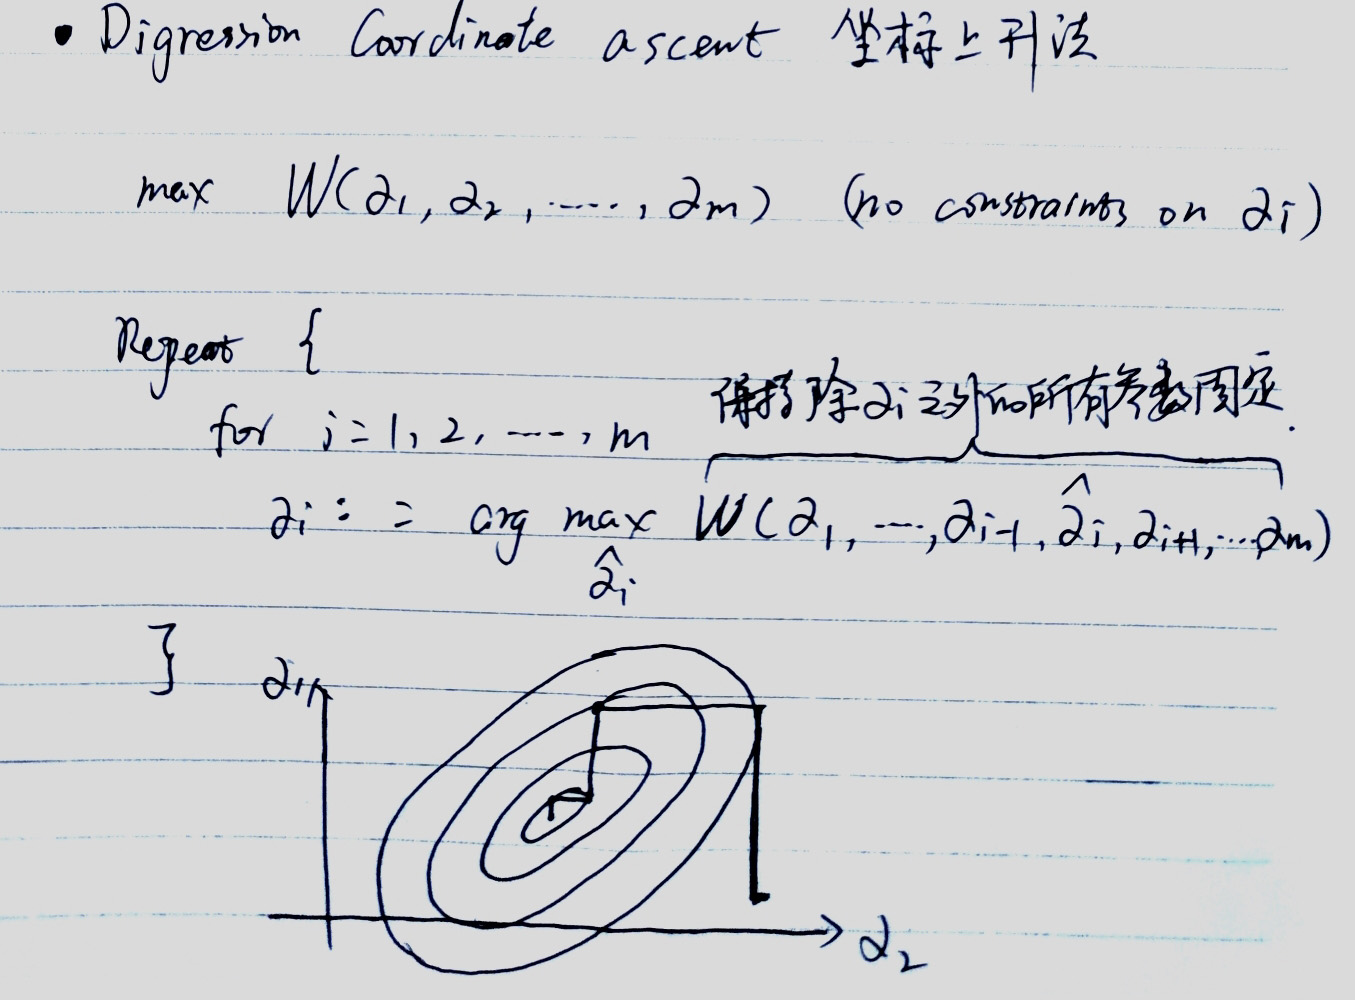 • Digression Coordinate ascent 坐标上升法
max W(α₁, α₂, ......, αm) (no constraints on αi)
Repeat {
保持除αi之外的所有参数固定.
for i=1, 2, ......, m
αi := arg max W(α₁, ..., αi-1, α̂i, αi+1, ... αm)
α̂i
}
α₁
α₂